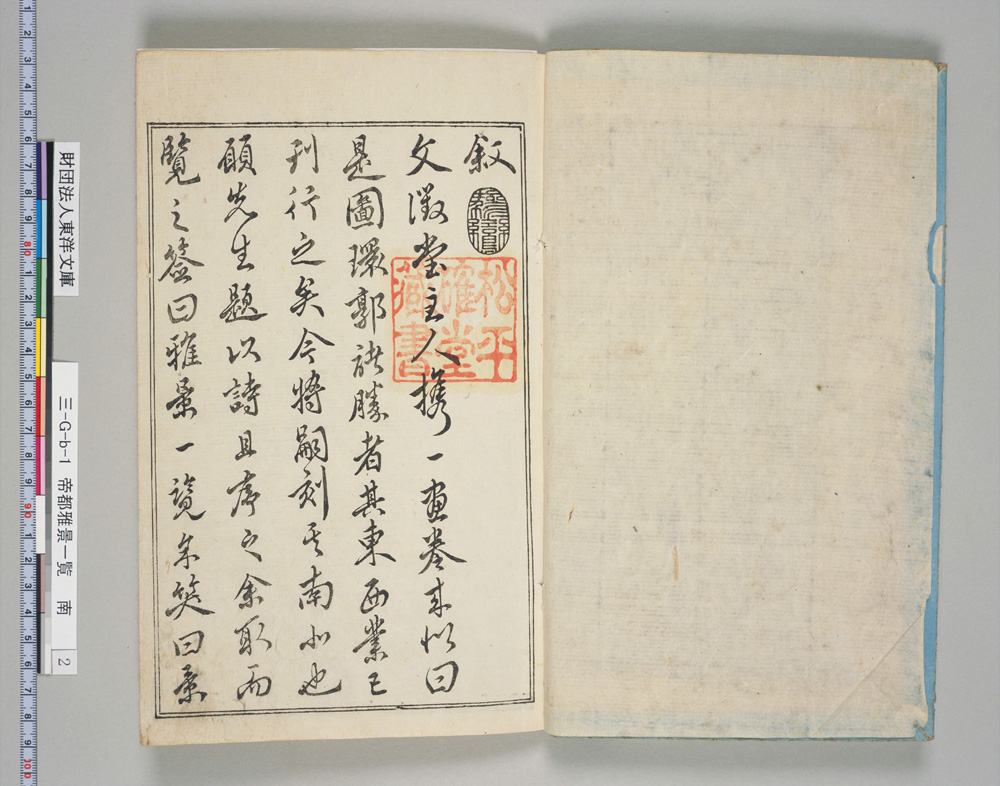 叙
文徴堂主人携一画巻来似曰
是圖環郭諸勝者其東西業已
刊行之矣今將嗣刻其南北也
願先生題以詩且序之余取而
覧之簽曰雅景一覧余笑曰景
松平
確堂
蔵書
財団法人東洋文庫
三-G-b-1 帝都雅景一覧 南
2